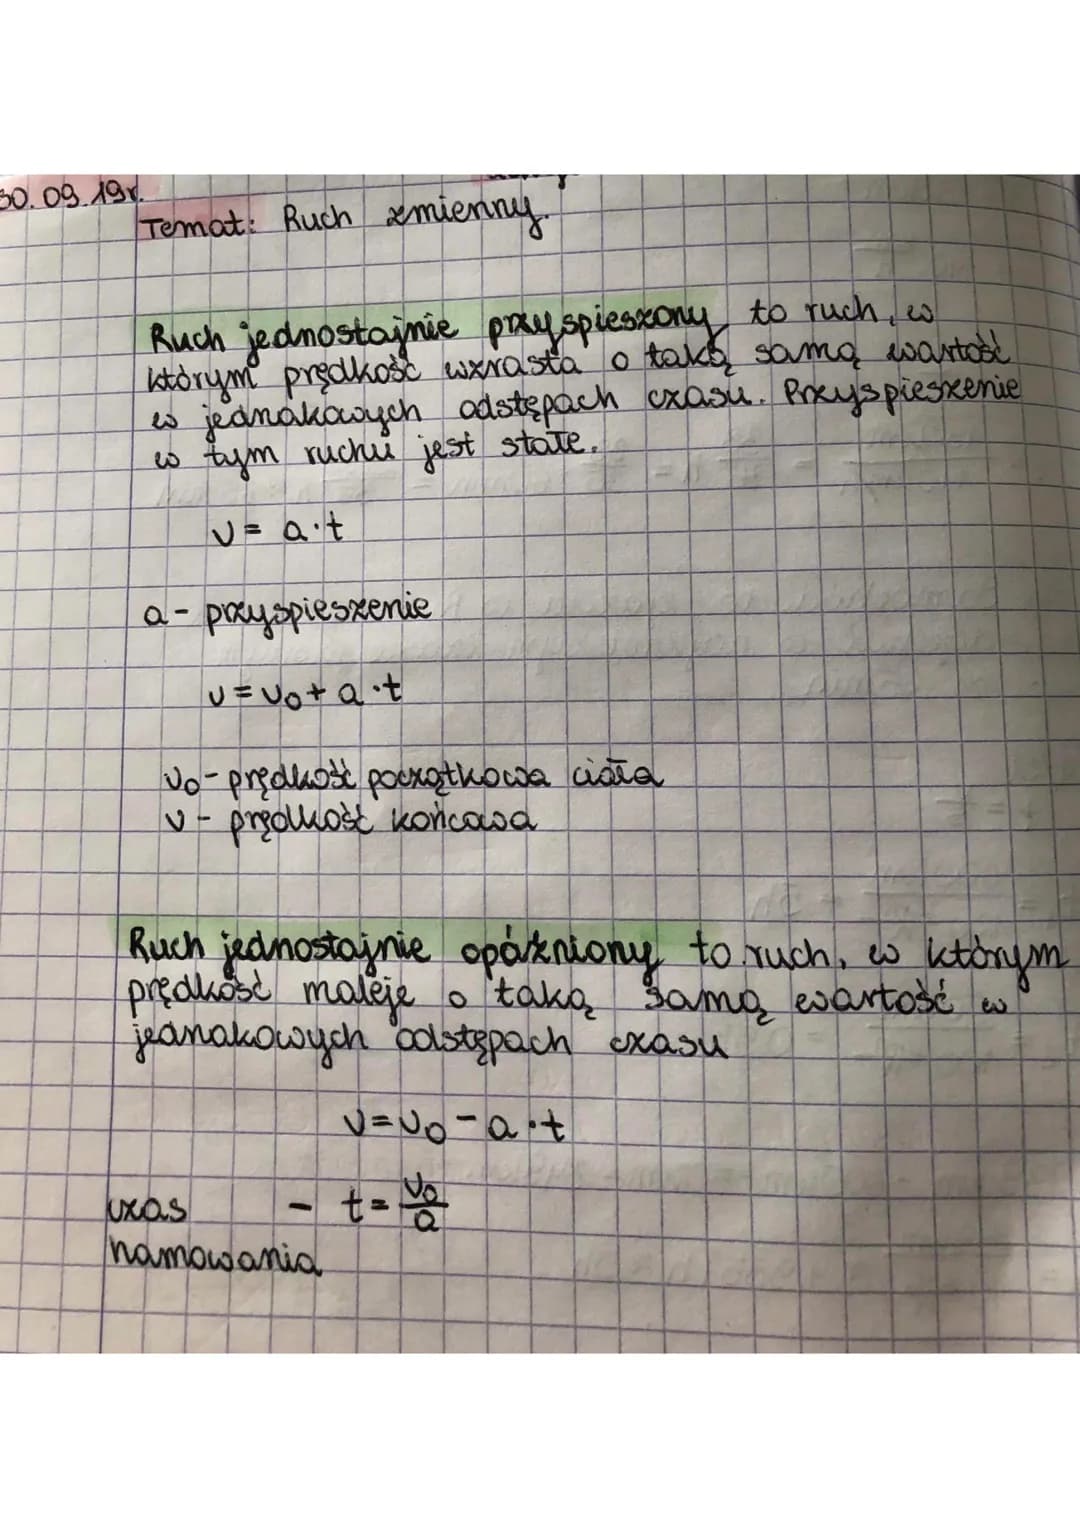 30.09.19r.
Temat: Ruch zmienny.
Ruch jednostajnie przyspieszony to ruch, w
którym prędkość wzrasta o taką samą wartość
w jednakowych odstępach czasu. Przyspieszenie
w tym ruchu jest stałe.
v = a·t
a - przyspieszenie
v = v₀ + a·t
v₀ - prędkość początkowa ciała
v - prędkość końcowa
Ruch jednostajnie opóźniony to ruch, w którym
prędkość maleje o taką samą wartość w
jednakowych odstępach czasu
v = v₀ - a·t
czas - t = v₀/a
hamowania